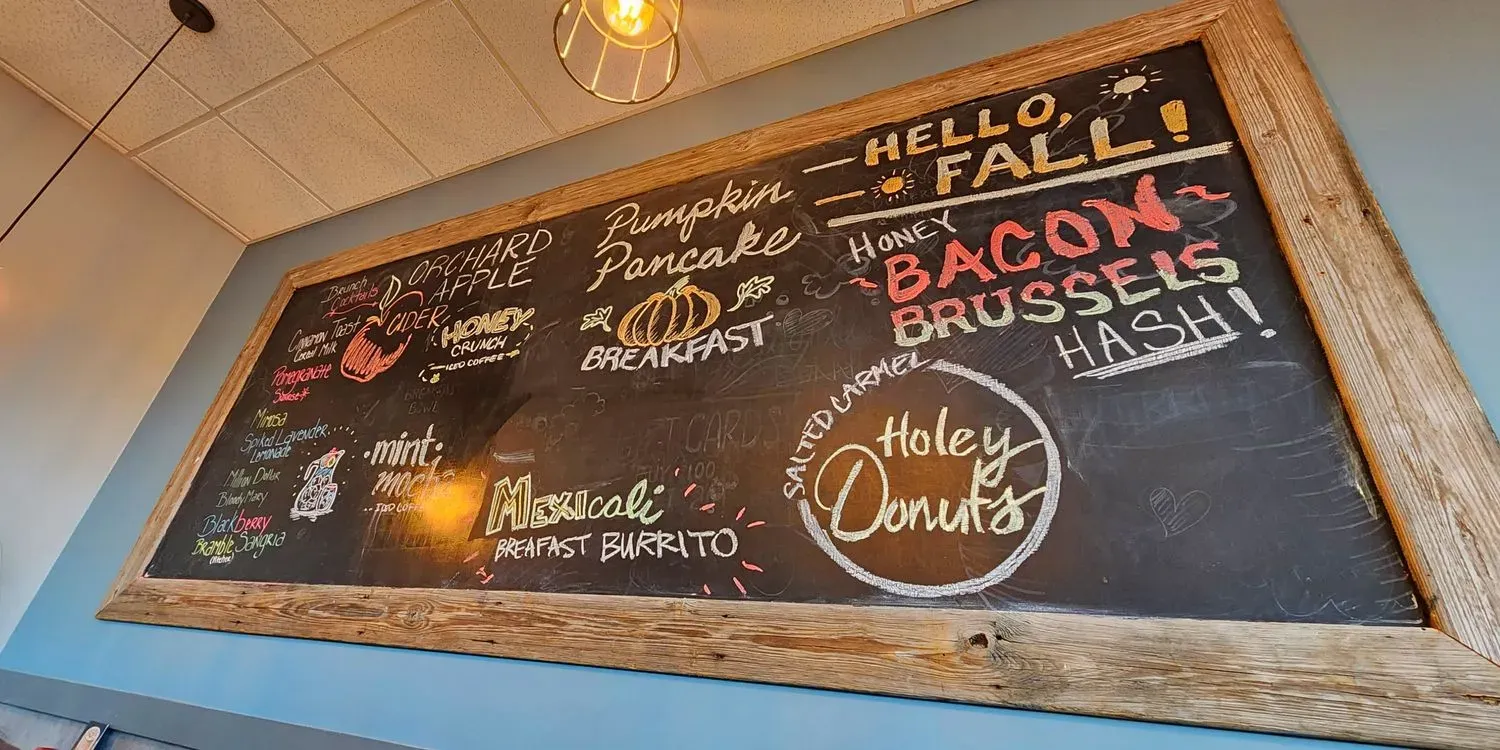 Brunch
Cocktails
Cinnamon Toast
Cereal Milk
Pomegranate
Mimosa
Spiked Lavender
Lemonade
Million Dollar
Bloody Mary
Blackberry
Bramble Sangria
ORCHARD
APPLE
CIDER
HONEY
CRUNCH
ICED COFFEE
mint
mocha
ICED COFFEE
Pumpkin
Pancake
BREAKFAST
MEXICali
BREAFAST BURRITO
HELLO,
FALL!
HONEY
BACON
BRUSSELS
HASH!
SALTED CARMEL
Holey
Donuts